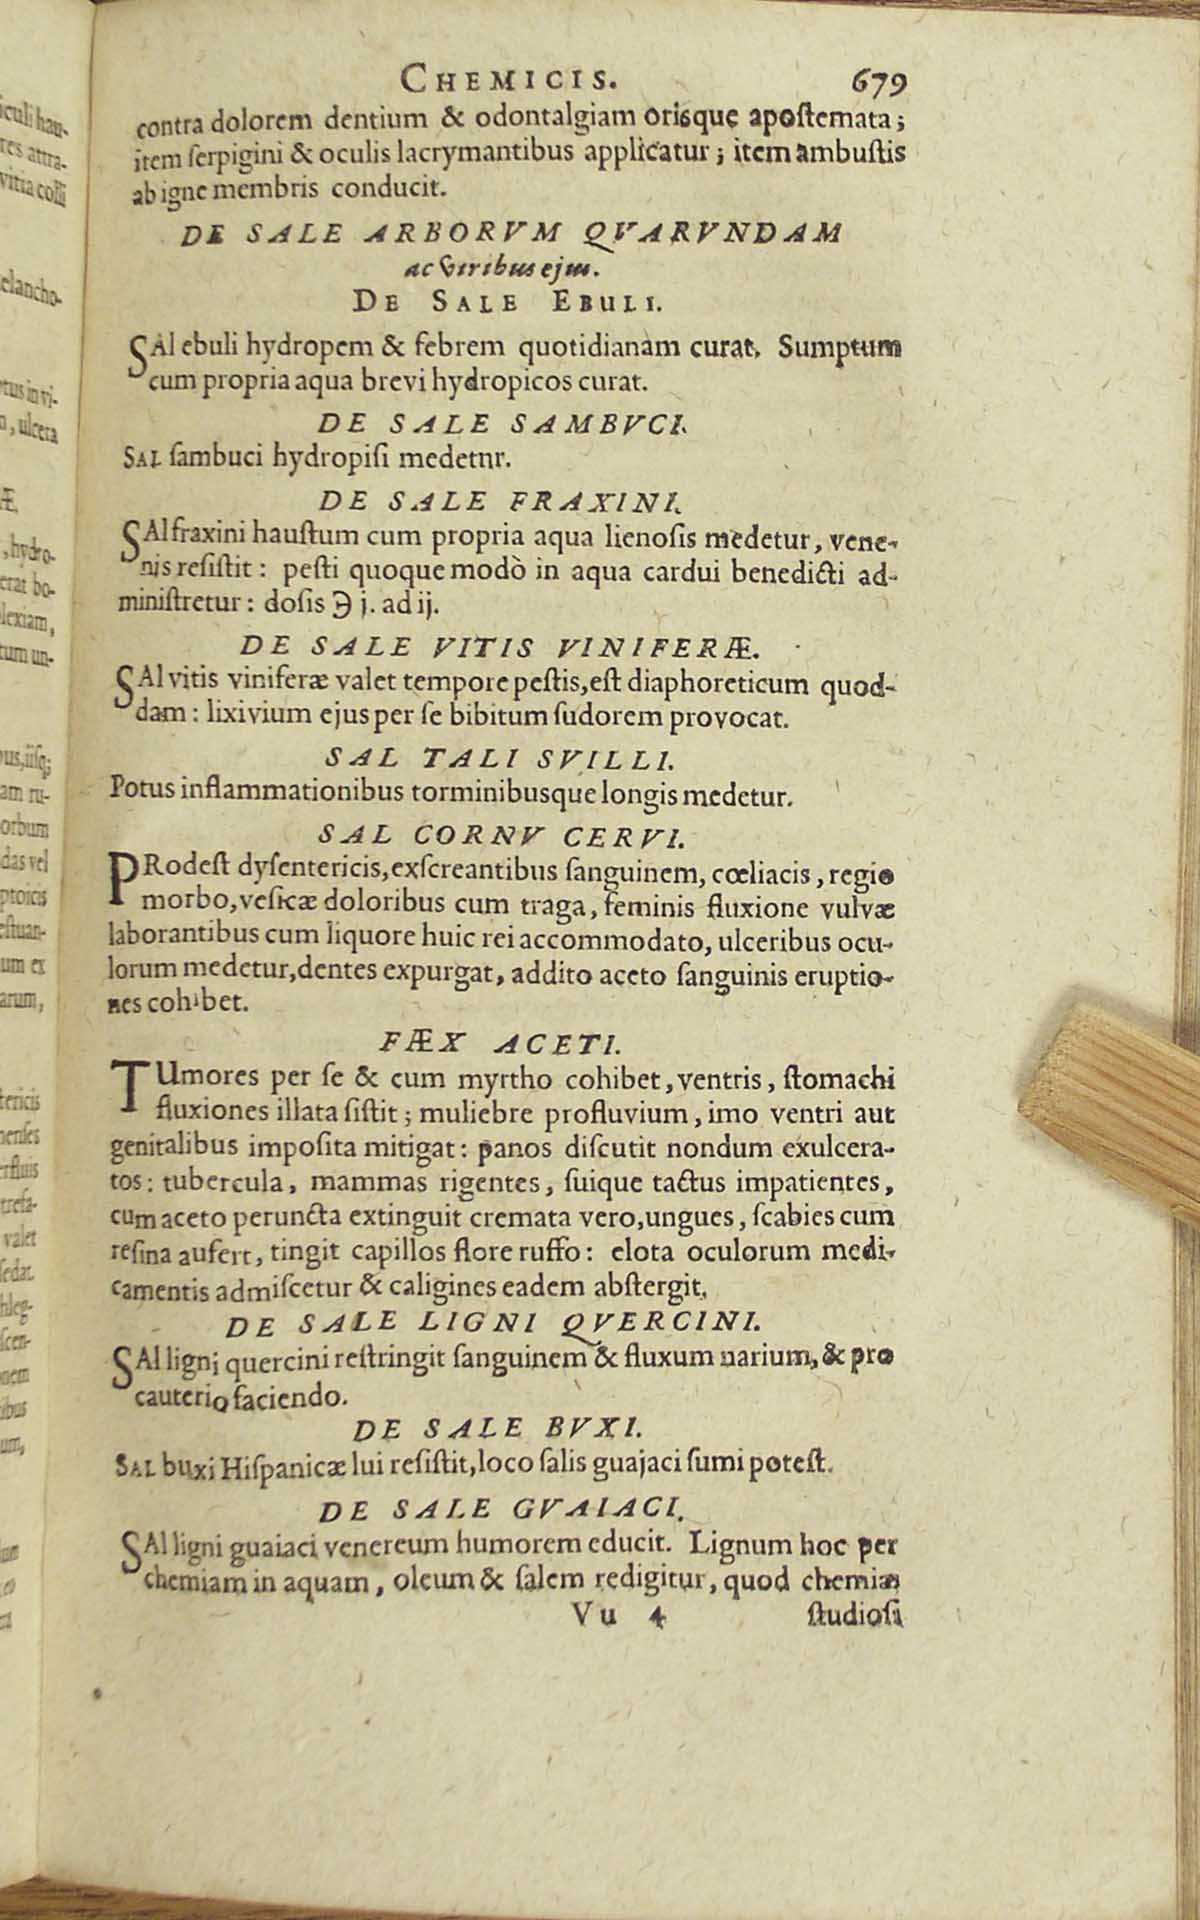 CHEMICIS. 679
contra dolorem dentium & odontalgiam orisque apostemata;
item ſerpigini & oculis lacrymantibus applicatur; item ambustis
ab igne membris conducit.
DE SALE ARBORVM QVARVNDAM
ac viribus ejus.
DE SALE EBULI.
SAl ebuli hydropem & febrem quotidianam curat. Sumptum
cum propria aqua brevi hydropicos curat.
DE SALE SAMBVCI.
SAL ſambuci hydropiſi medetnr.
DE SALE FRAXINI.
SAl fraxini hauſtum cum propria aqua lienoſis medetur, vene-
nis reſiſtit: peſti quoque modò in aqua cardui benedicti ad-
miniſtretur: doſis ℈ j. ad ij.
DE SALE VITIS VINIFERÆ.
SAl vitis viniferæ valet tempore peſtis, eſt diaphoreticum quod-
dam: lixivium ejus per ſe bibitum ſudorem provocat.
SAL TALI SVILLI.
Potus inflammationibus torminibusque longis medetur.
SAL CORNV CERVI.
PRodeſt dyſentericis, exſcreantibus ſanguinem, cœliacis, regio
morbo, veſicæ doloribus cum traga, feminis fluxione vulvæ
laborantibus cum liquore huic rei accommodato, ulceribus ocu-
lorum medetur, dentes expurgat, addito aceto ſanguinis eruptio-
nes cohibet.
FÆX ACETI.
TUmores per ſe & cum myrtho cohibet, ventris, ſtomachi
fluxiones illata ſiſtit; muliebre profluvium, imo ventri aut
genitalibus impoſita mitigat: panos diſcutit nondum exulcera-
tos: tubercula, mammas rigentes, ſuique tactus impatientes,
cum aceto peruncta extinguit cremata vero, ungues, ſcabies cum
reſina aufert, tingit capillos flore ruffo: elota oculorum medi-
camentis admiſcetur & caligines eadem abſtergit.
DE SALE LIGNI QVERCINI.
SAl ligni quercini reſtringit ſanguinem & fluxum narium, & pro
cauterio faciendo.
DE SALE BVXI.
SAL buxi Hiſpanicæ lui reſiſtit, loco ſalis guajaci ſumi poteſt.
DE SALE GVAIACI.
SAl ligni guaiaci venereum humorem educit. Lignum hoc per
chemiam in aquam, oleum & ſalem redigitur, quod chemiæ
Vu 4 ſtudioſi